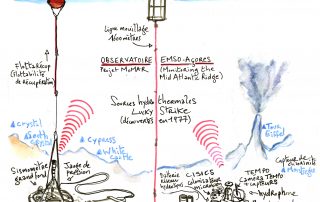 Ligne mouillage
160 mètres
Flotta Récup
(flottabilité
de récupération)
OBSERVATOIRE EMSO-AÇORES
Projet MoMAR (Monitoring the
Mid Atlantic Ridge)
Sources hydrothermales
Lucky Strike
(découvertes
en 1977)
Crystal
South
Crystal
Cypress
White
Castle
Tour
Eiffel
Sismomètre
grand fond
Jauge de
pression
CISICS
colonisateur
TEMPO
Caméra TEMPO
+ capteurs
Capteurs de
Montségur
hydrophone